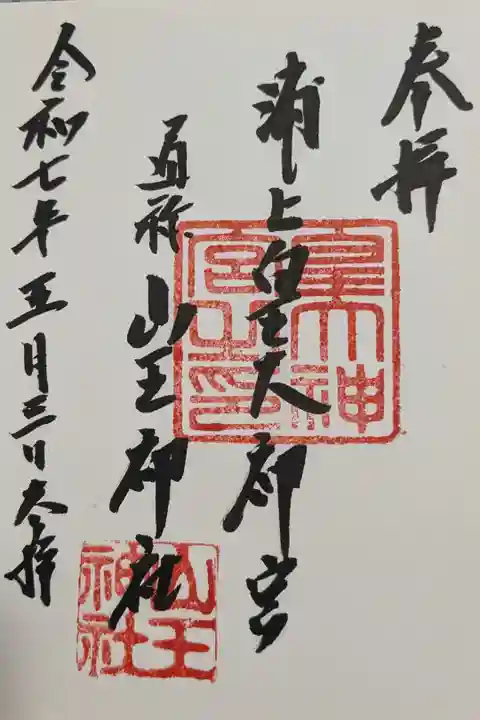 奉拝
浦上皇大神宮
通称 山王神社
令和七年五月三日奉拝
皇大神宮之印
山王神社